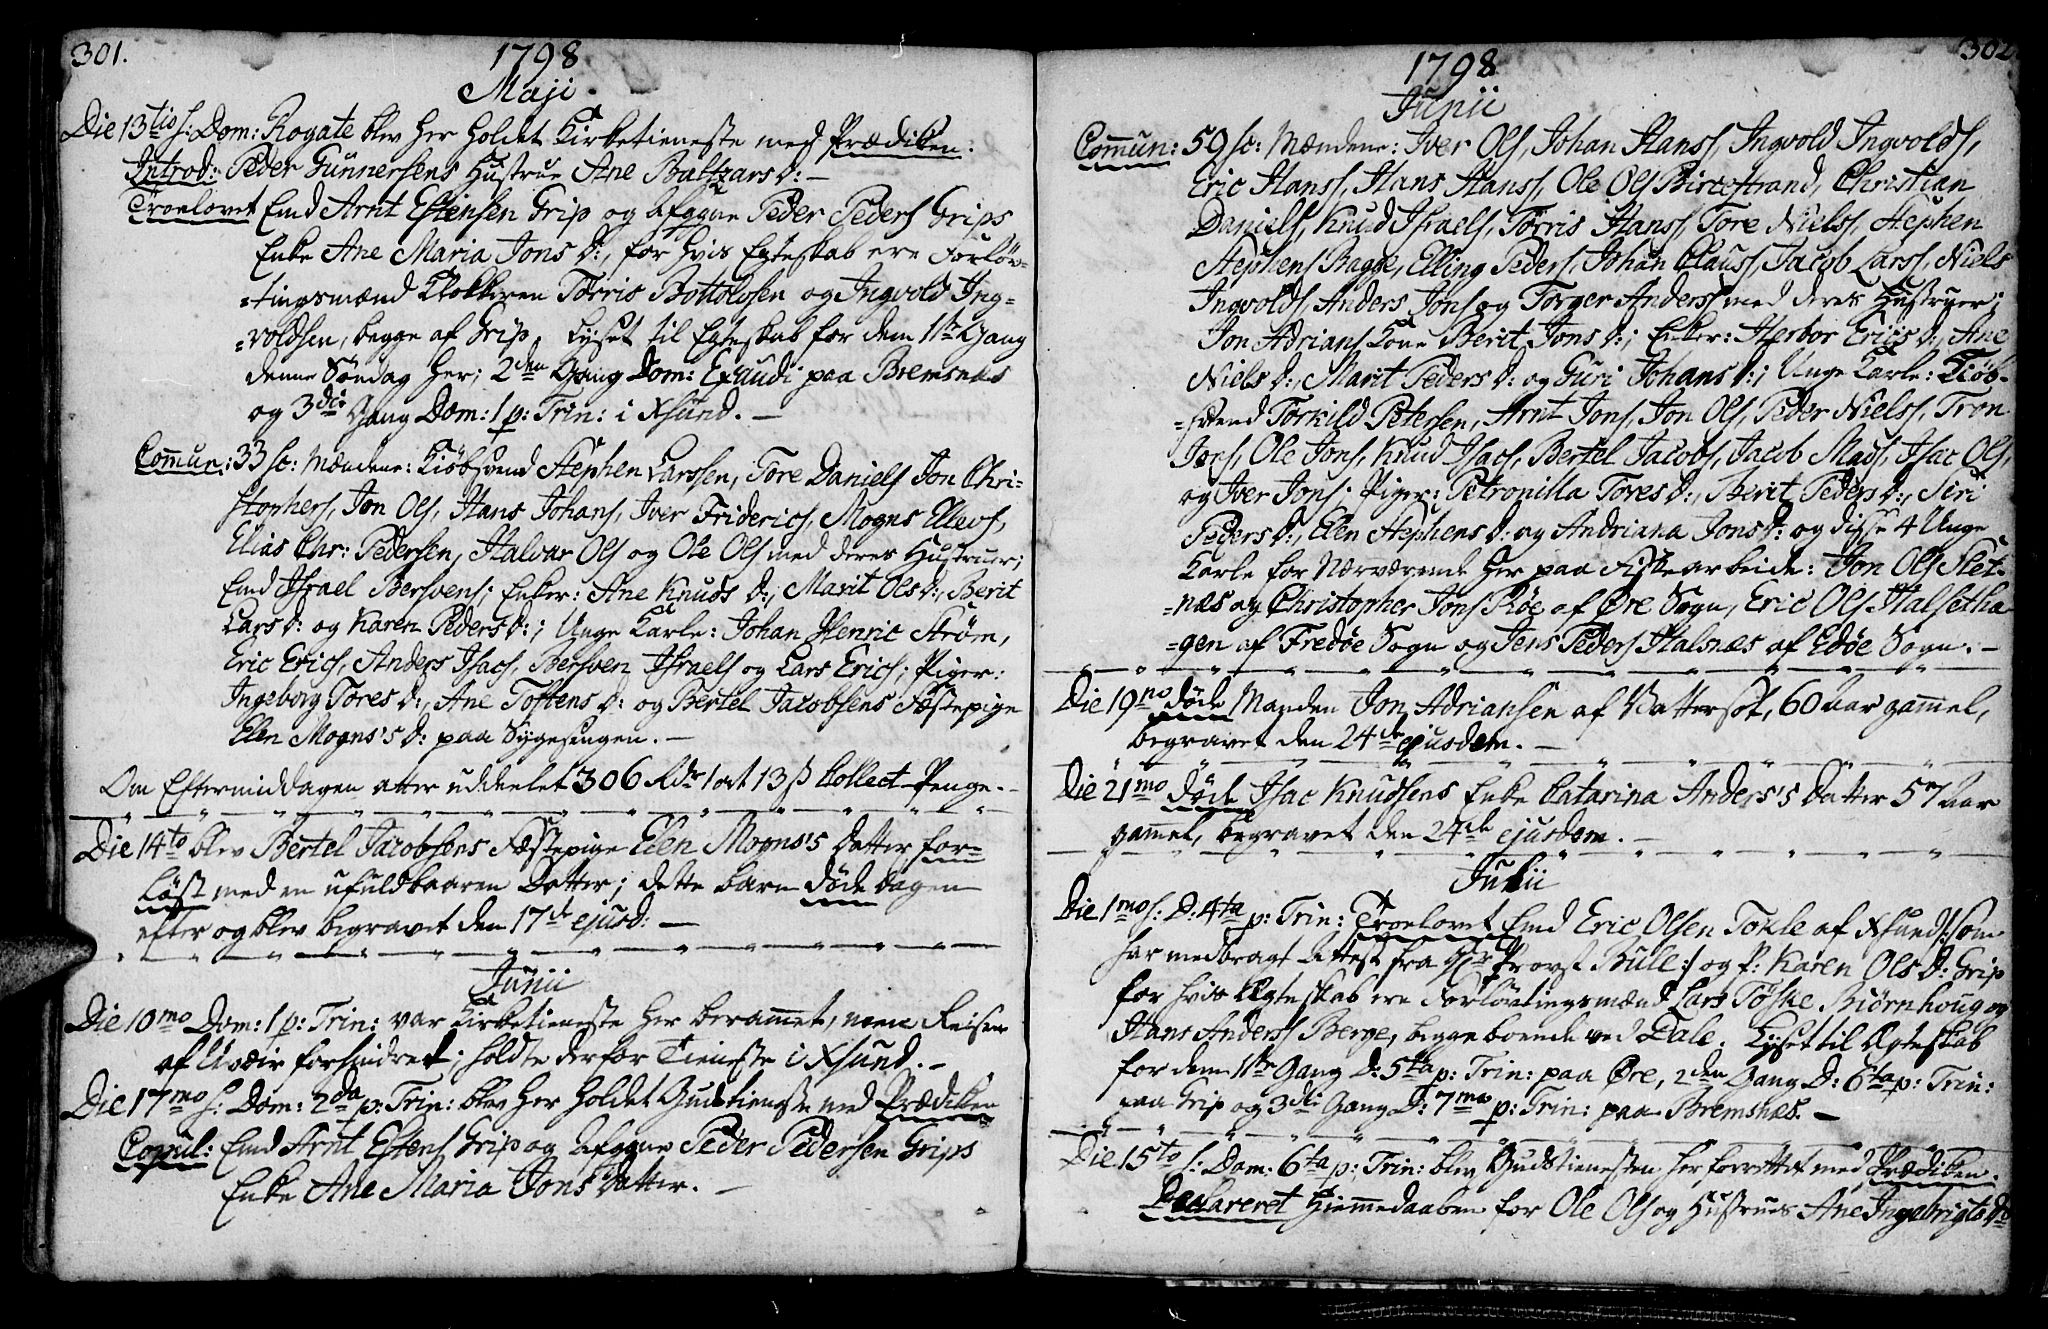 301.
1798
Maji.
Die 13tio s: Dom: Rogate blev her holdet Kirketieneste med Prædiken.
Introd: Peder Gunnersens Hustrue Ane Baltzars d: —
Troelovet Emd Arnt Estensen Grip og afggne Peder Peders Grips
Enke Ane Maria Jons d:, for hvis Egteskab ere Forlöv-
=tingsmænd Klokkeren Törris Bottolvsen og Ingvold Ing=
=voldsen, begge af Grip. Lyset til Egteskab for dem 1ste Gang
denne Söndag her; 2den Gang Dom: Exaudi paa Bremsnæs
og 3die Gang Dom: 1 p: Trin: i Xsund. —
Commun: 33 sc: Mændene: Kiöbsvend Stephen Larssen, Tore Daniels Jon Chri-
stophers, Jon Ols, Hans Johans, Iver Friderics, Mogns Ellevs,
Elias Chr: Pedersen, Halvar Ols og Ole Ols med deres Hustruer;
Emd Israel Bersvens; Enker: Ane Knuds d:, Marit Ols d:, Berit
Lars d: og Karen Peders d:; Unge Karle: Johan Henric Ström,
Eric Erics, Anders Isacs, Bersven Israels og Lars Erics; Piger:
Ingeborg Tores d:, Ane Toftens d: og Bertel Jacobsens Fæstepige
Elen Mogns's d: paa Sygesengen. —
Om Eftermiddagen atter uddeelet 306 Rdr 1 ort 13 ß Collect-Penge. -
Die 14to blev Bertel Jacobsens Fæstepige Elen Mogns's Datter for=
löst med en ufuldbaaren Datter; dette barn döde dagen
efter og blev begravet den 17de ejusd: —
Junii
Die 10mo Dom: 1 p: Trin: var Kirketieneste her berammet, men Reisen
af Uveir forhindret; holdte derfor Tieneste i Xsund. —
Die 17mo s: Dom: 2da p: Trin: blev her holdet Gudstieneste med Prædiken
Copul: Emd Arnt Estens Grip og afggne Peder Pedersen Grips
Enke Ane Maria Jons Datter. —
302
1798
Junii
Commun: 59 sc: Mændene: Iver Ols, Johan Hanss, Ingvold Ingvolds,
Eric Hanss, Hans Hanss, Ole Ols Birkestrand, Christian
Daniels, Knud Israels, Törris Hanss, Tore Nielss, Stephen
Stephens Bagge, Elling Peders, Johan Clauss, Jacob Larss, Niels
Ingvolds Anders Jons og Torger Anderss med deres Hustruer;
Jon Adrians Kone Berit Jons d:; Enker: Herbor Erics d:, Ane
Niels d:, Marit Peders d: og Guri Johans d:; Unge Karle: Kiöb-
=svend Torkild Petersen, Arnt Jons, Jon Ols, Peder Nielss, Tron
Jons, Ole Jons, Knud Isacs, Bertel Jacobs, Jacob Mads, Isac Ols,
og Iver Jons; Piger: Petronilla Tores d:, Berit Peders d:, Siri
Peders d:, Elen Stephens d: og Andriana Jons d: og disse 4 Unge
Karle for Nærværende her paa Fiskearbeide: Jon Ols Slet-
=næs og Christopher Jons Röe af Öre Sogn, Eric Ols Halsetha
=gen af Fredöe Sogn og Jens Peders Halsnæs af Edöe Sogn. —
Die 19no döde Manden Jon Adriansen af Vattersot, 60 aar gammel,
begravet den 24de ejusdem. —
Die 21mo döde Isac Knudsens Enke Catarina Anders's Datter 57 aar
gammel, begravet den 24de ejusdem. —
Julii
Die 1mo s: D: 4ta p: Trin: Troelovet Emd Eric Olsen Tokle af Xsund /: som
har medbragt Attest fra Hr Provst Bull :/ og P: Karen Ols d: Grip
for hvis Ægteskab ere Forlövtingsmænd Lars Töske Biörnhoug og
Hans Anderss Berge, begge boende ved Dale. Lyset til Ægteskab
for dem 1ste Gang D: 5ta p: Trin: paa Öre, 2den Gang D: 6ta p: Trin:
paa Grip og 3die Gang D: 7ma p: Trin: paa Bremsnæs. —
Die 15to s: Dom: 6ta p: Trin: blev Gudstienesten her forrettet med Prædiken.
Declareret Hiemmedaaben for Ole Ols og Hustrues Ane Ingebrigts D: